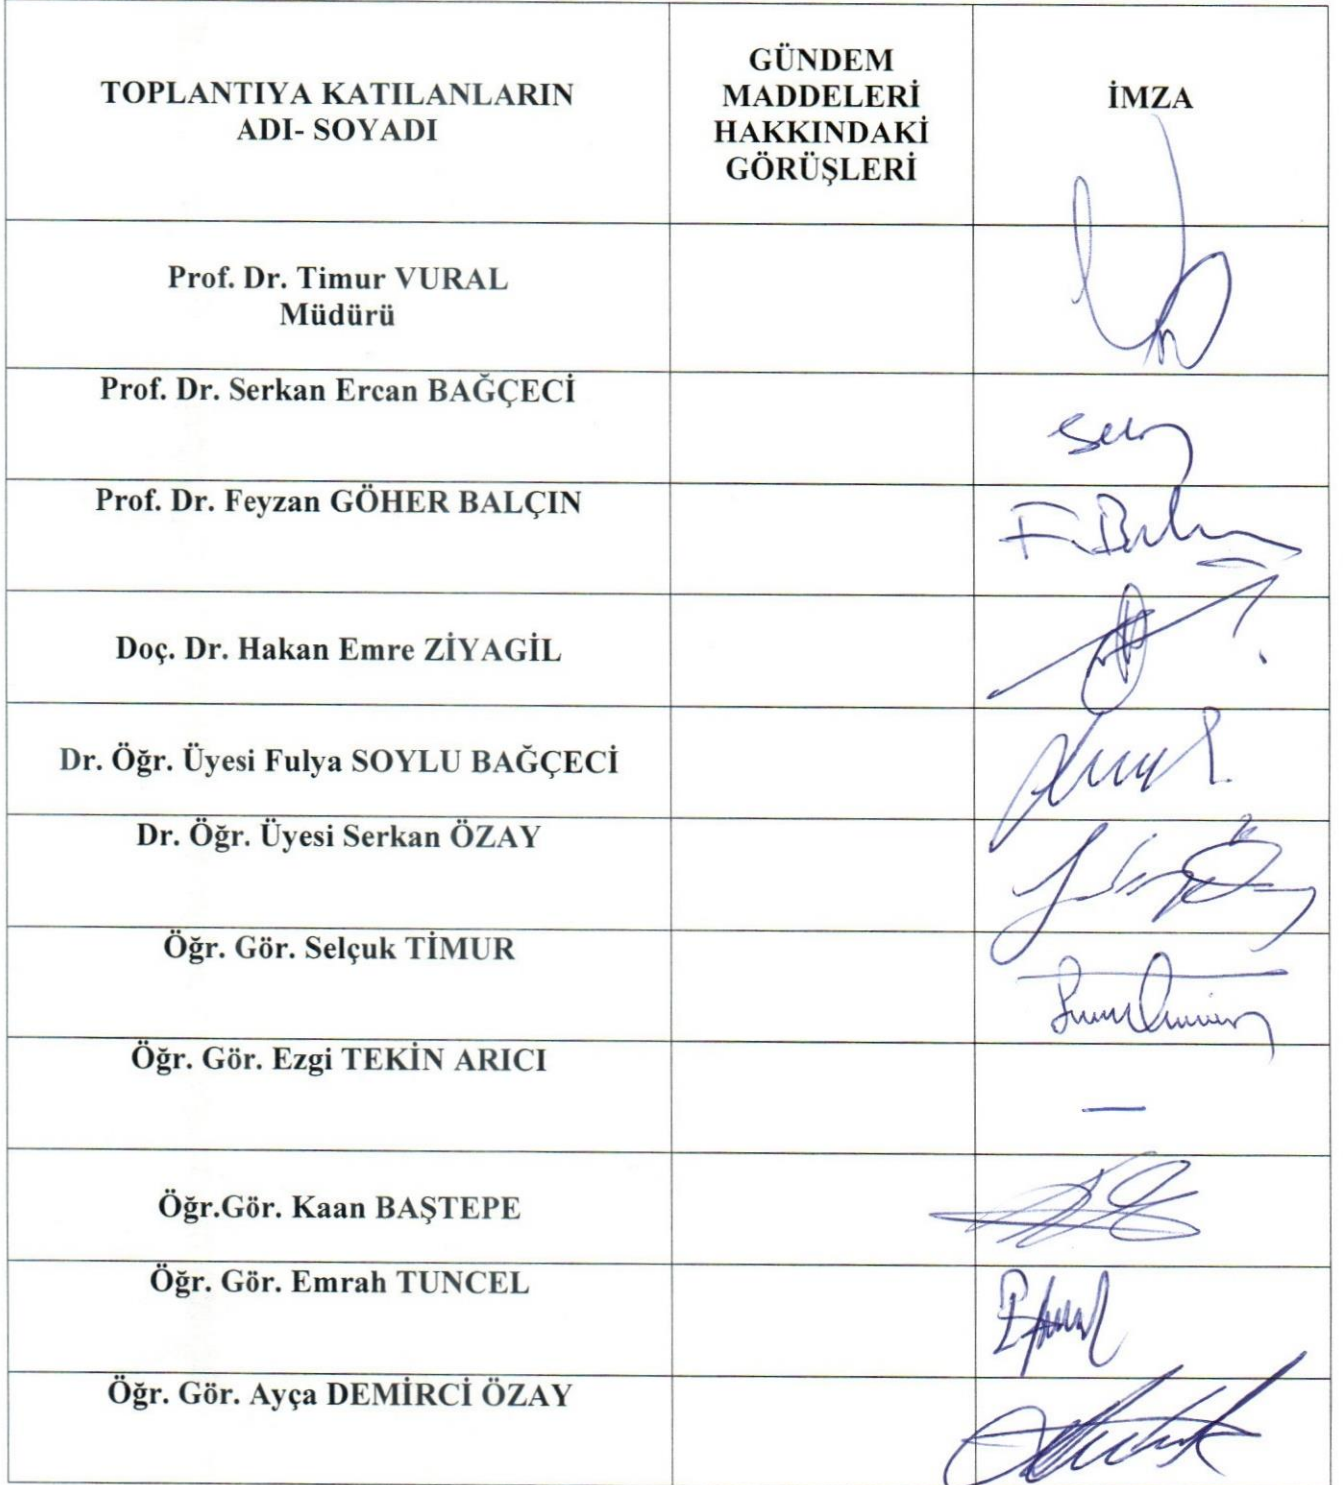 TOPLANTIYA KATILANLARIN
ADI- SOYADI
GÜNDEM
MADDELERİ
HAKKINDAKİ
GÖRÜŞLERİ
İMZA
Prof. Dr. Timur VURAL
Müdürü
Prof. Dr. Serkan Ercan BAĞÇECİ
Prof. Dr. Feyzan GÖHER BALÇIN
Doç. Dr. Hakan Emre ZİYAGİL
Dr. Öğr. Üyesi Fulya SOYLU BAĞÇECİ
Dr. Öğr. Üyesi Serkan ÖZAY
Öğr. Gör. Selçuk TİMUR
Öğr. Gör. Ezgi TEKİN ARICI
—
Öğr.Gör. Kaan BAŞTEPE
Öğr. Gör. Emrah TUNCEL
Öğr. Gör. Ayça DEMİRCİ ÖZAY